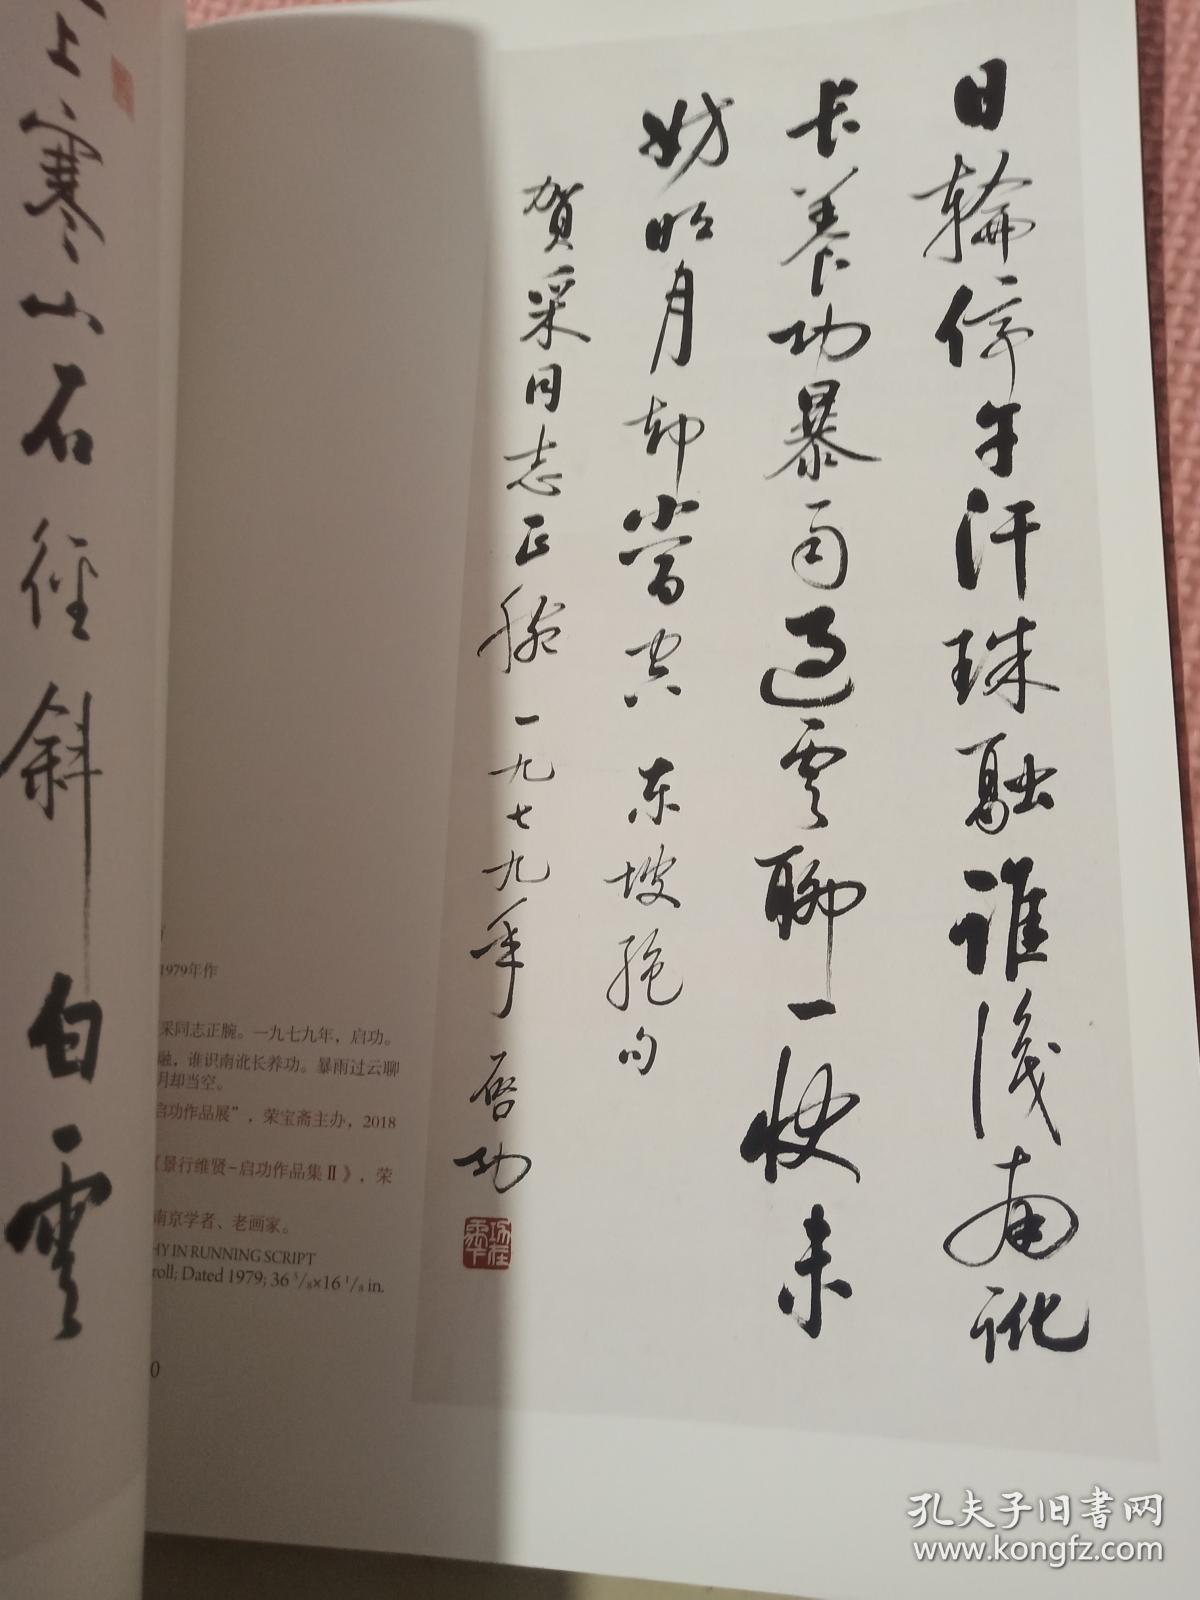 日輪停午汗珠融誰識南訛
长养功暴雨過雲聊一快未
妨明月却當空 东坡绝句
賀采同志正腕 一九七九年 启功
上寒山石徑斜 白雲
1979年作
采同志正腕。一九七九年，启功。
融，谁识南讹长养功。暴雨过云聊
月却当空。
启功作品展”，荣宝斋主办，2018
《景行维贤-启功作品集Ⅱ》，荣
南京学者、老画家。
HY IN RUNNING SCRIPT
roll; Dated 1979; 36 ⁵/₈×16 ¹/₈ in.
0
孔夫子旧书网
www.kongfz.com